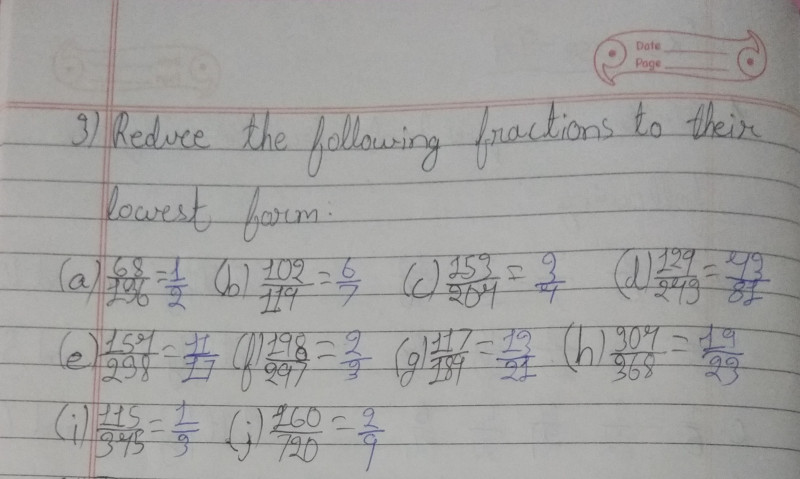 Date
Page
3) Reduce the following fractions to their
lowest form:
(a) 68/136 = 1/2 (b) 102/119 = 6/7 (c) 153/204 = 3/4 (d) 129/243 = 43/81
(e) 154/238 = 11/17 (f) 198/297 = 2/3 (g) 117/189 = 13/21 (h) 304/368 = 19/23
(i) 115/345 = 1/3 (j) 160/720 = 2/9